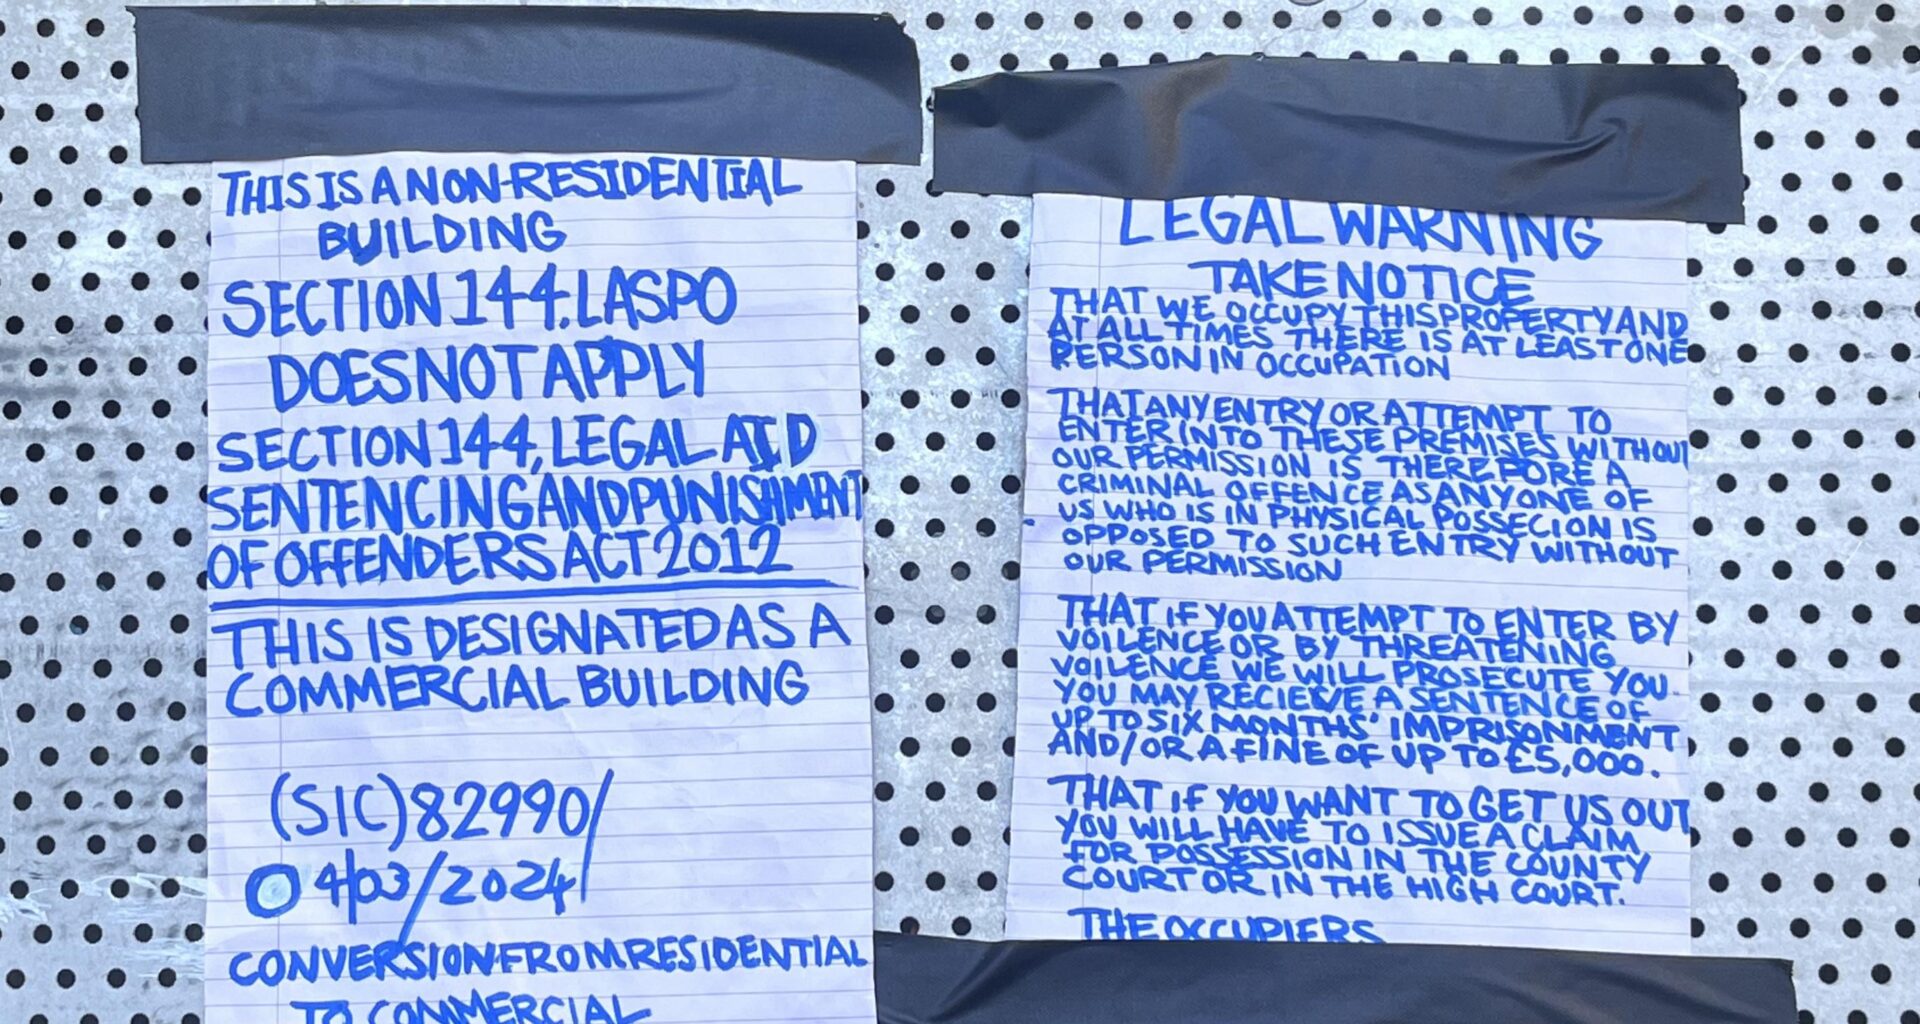 THIS IS A NON-RESIDENTIAL
BUILDING
SECTION 144, LASPO
DOES NOT APPLY
SECTION 144, LEGAL AID
SENTENCING AND PUNISHMENT
OF OFFENDERS ACT 2012
THIS IS DESIGNATED AS A
COMMERCIAL BUILDING
(SIC) 82990/
04/03/2024
CONVERSION FROM RESIDENTIAL
TO COMMERCIAL
LEGAL WARNING
TAKE NOTICE
THAT WE OCCUPY THIS PROPERTY AND
AT ALL TIMES THERE IS AT LEAST ONE
PERSON IN OCCUPATION
THAT ANY ENTRY OR ATTEMPT TO
ENTER INTO THESE PREMISES WITHOUT
OUR PERMISSION IS THEREFORE A
CRIMINAL OFFENCE AS ANYONE OF
US WHO IS IN PHYSICAL POSSECION IS
OPPOSED TO SUCH ENTRY WITHOUT
OUR PERMISSION
THAT IF YOU ATTEMPT TO ENTER BY
VOILENCE OR BY THREATENING
VOILENCE WE WILL PROSECUTE YOU.
YOU MAY RECIEVE A SENTENCE OF
UP TO SIX MONTHS' IMPRISONMENT
AND/OR A FINE OF UP TO £5,000.
THAT IF YOU WANT TO GET US OUT
YOU WILL HAVE TO ISSUE A CLAIM
FOR POSSESSION IN THE COUNTY
COURT OR IN THE HIGH COURT.
THE OCCUPIERS